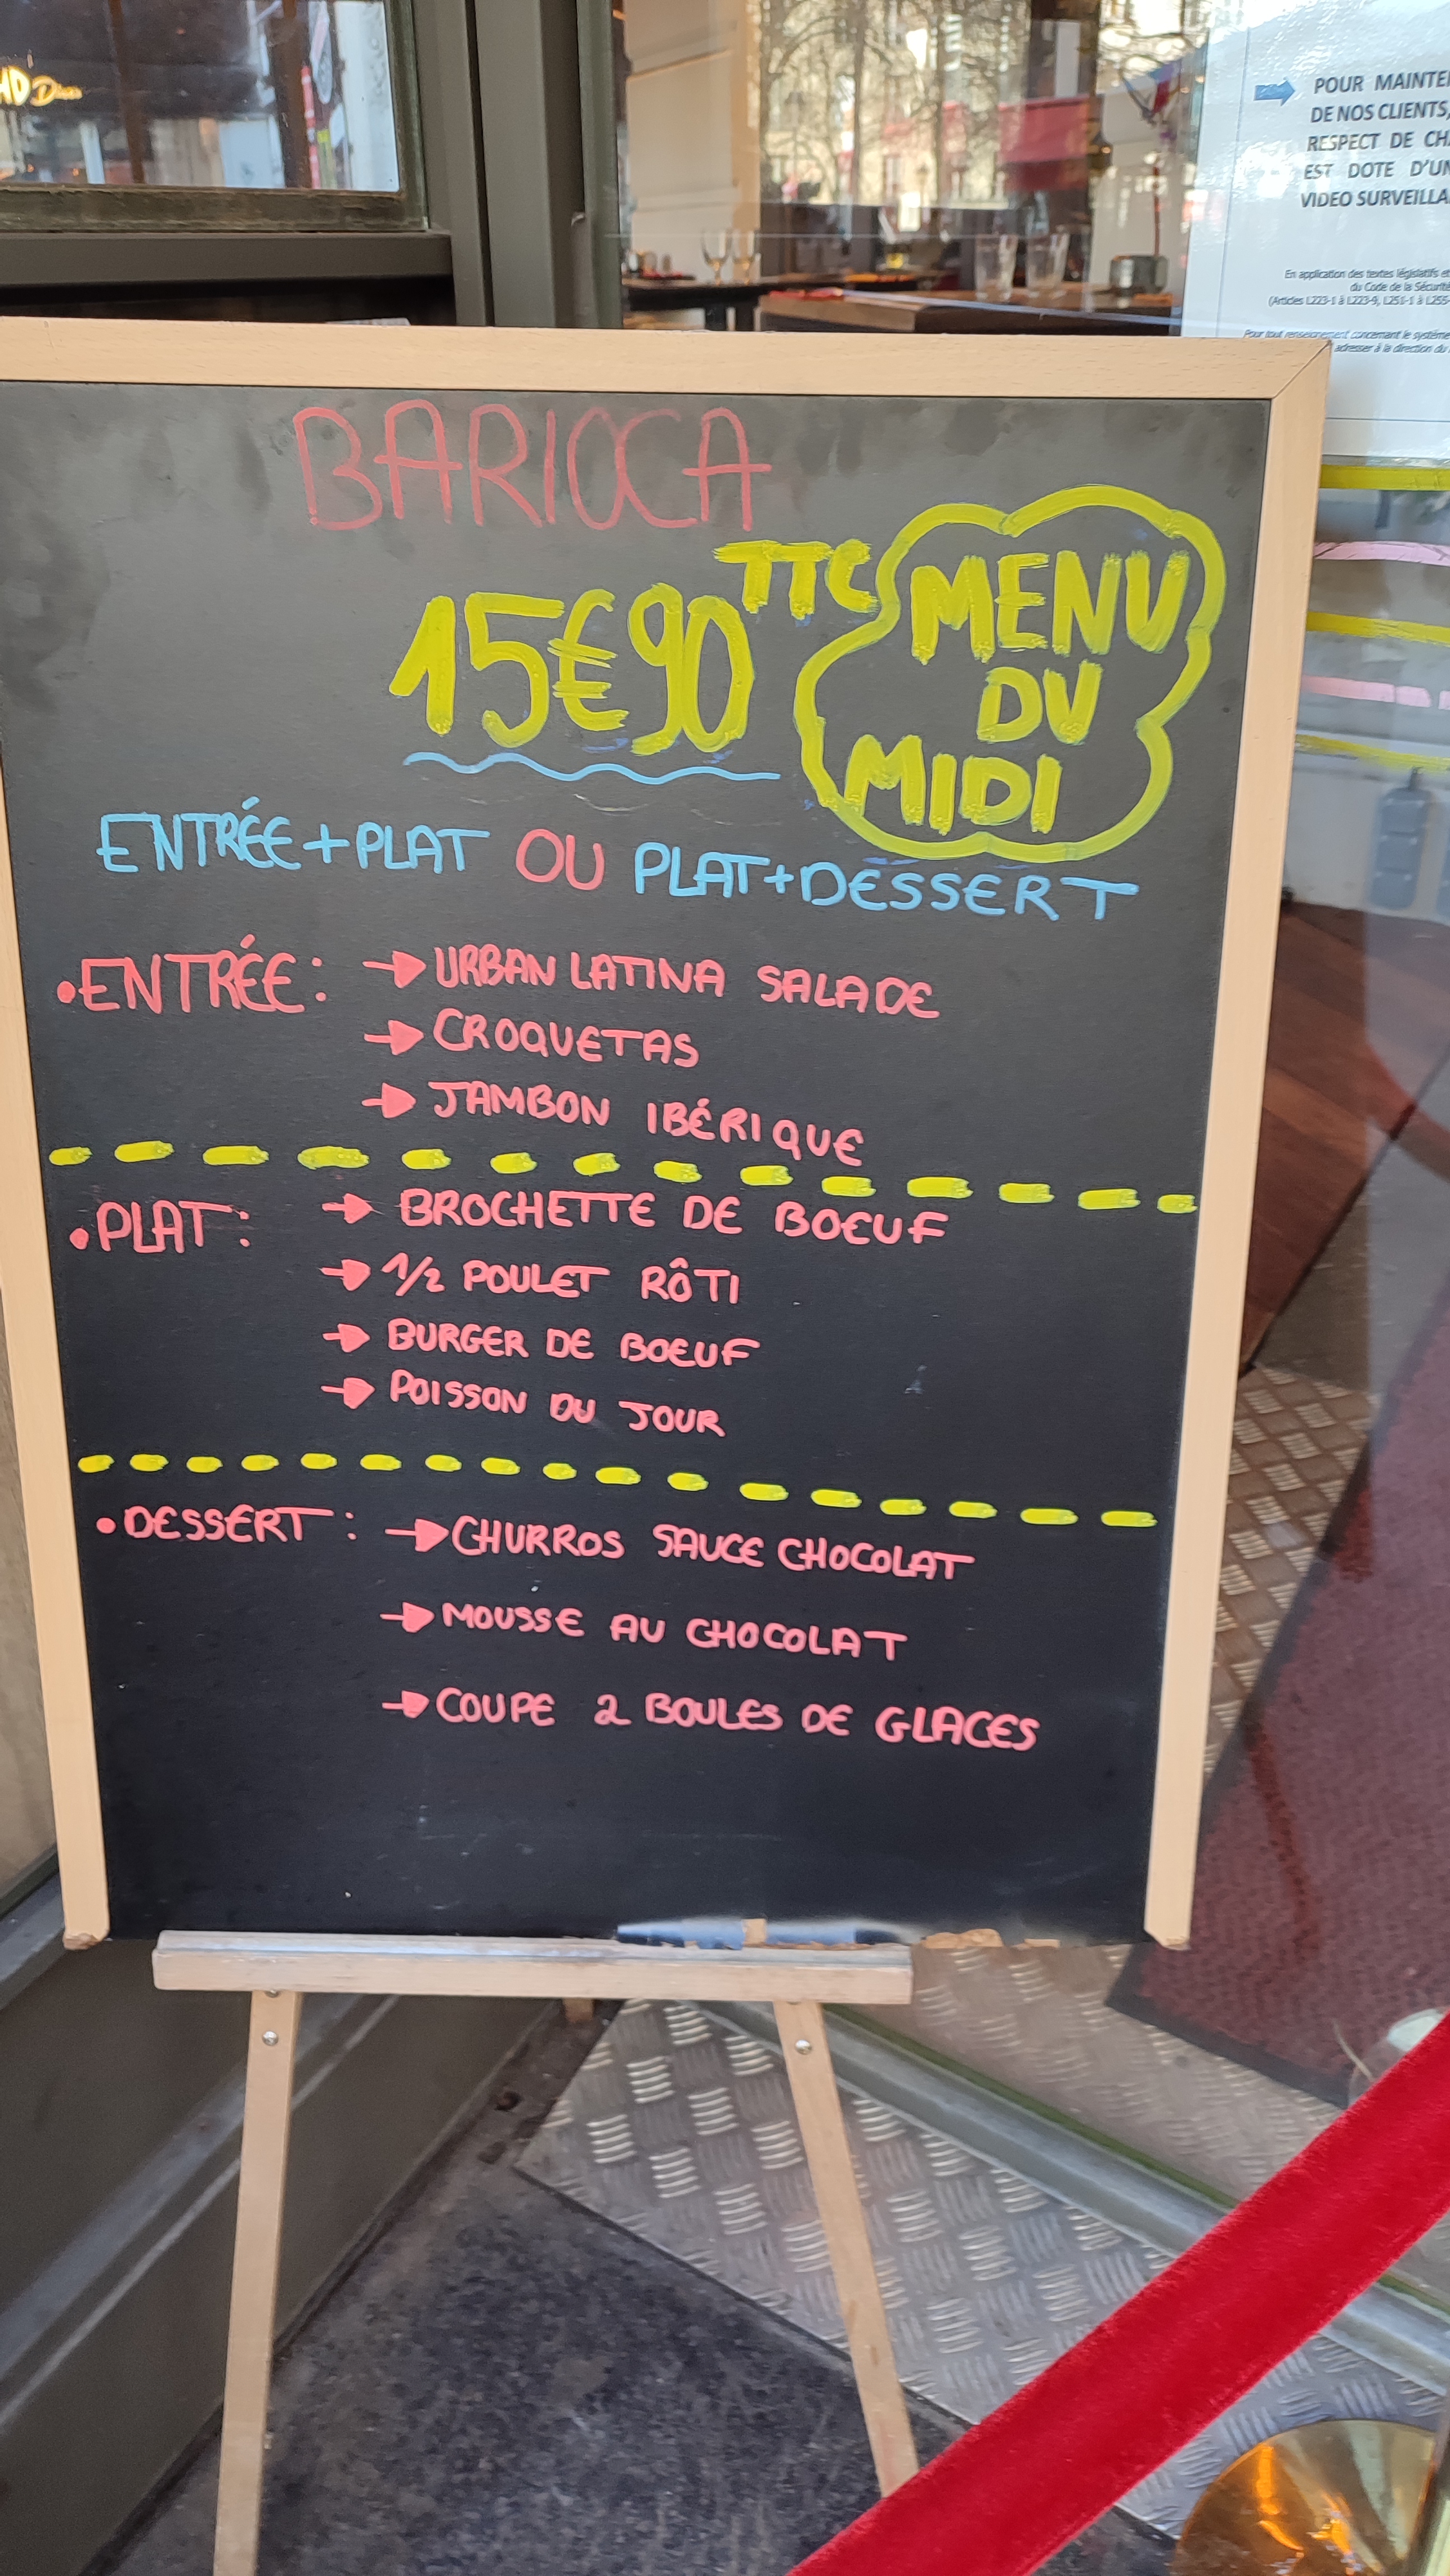 HD Diner
POUR MAINTE
DE NOS CLIENTS,
RESPECT DE CH
EST DOTE D'UN
VIDEO SURVEILLA
En application des textes législatifs et
du Code de la Sécurité
(Articles L223-1 à L223-9, L251-1 à L255
Pour tout renseignement concernant le système
adresser à la direction du
BARIOCA
15€90 TTC
MENU
DU
MIDI
ENTRÉE+PLAT OU PLAT+DESSERT
•ENTRÉE: → URBAN LATINA SALADE
→ CROQUETAS
→ JAMBON IBÉRIQUE
•PLAT: → BROCHETTE DE BOEUF
→ 1/2 POULET RÔTI
→ BURGER DE BOEUF
→ POISSON DU JOUR
•DESSERT: → CHURROS SAUCE CHOCOLAT
→ MOUSSE AU CHOCOLAT
→ COUPE 2 BOULES DE GLACES